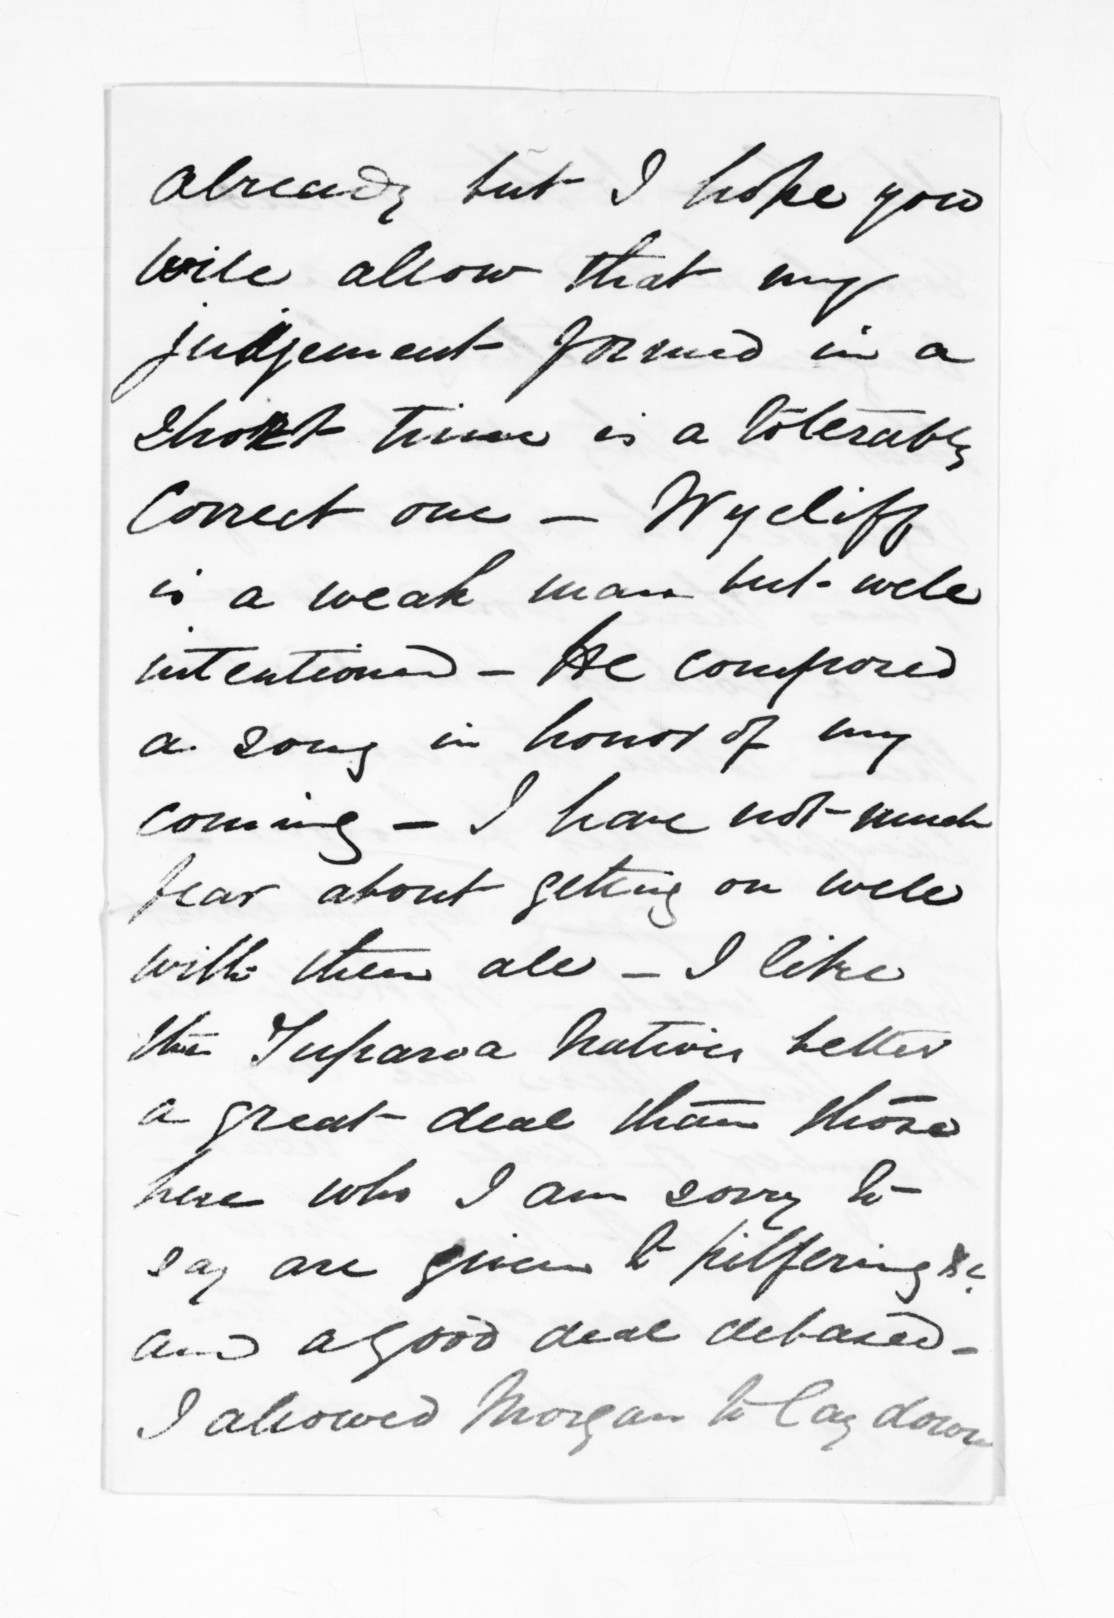 already but I hope you
will allow that my
judgement formed in a
short time is a tolerably
correct one – Wycliff
is a weak man but well
intentioned – He composed
a song in honor of my
coming – I have not much
fear about getting on well
with them all – I like
the Tuparoa Natives better
a great deal than those
here who I am sorry to
say are given to pilfering &c.
and a good deal debased –
I allowed Morgan to lay down